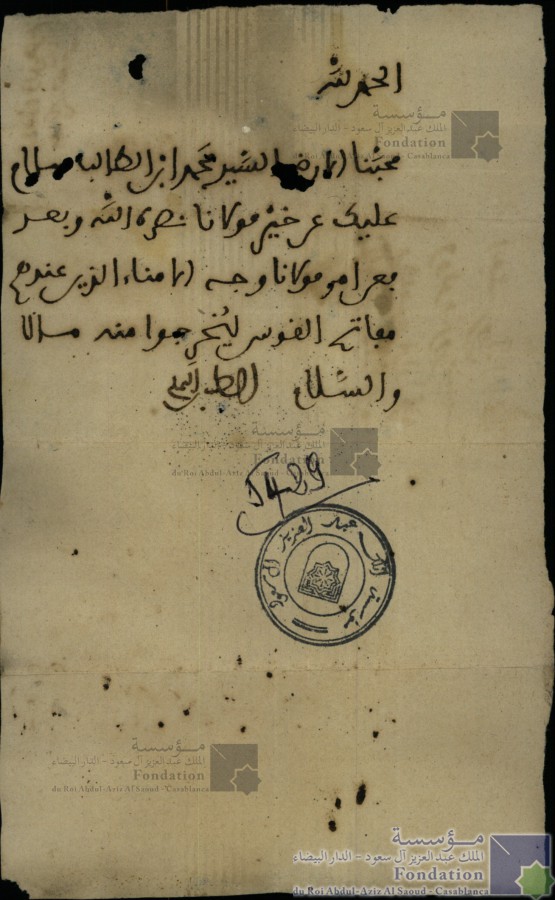 الحمد لله
محبنا الارضى السيد محمد ابن الطالب سلام
عليك عن خير مولانا نصره الله وبعد
فعن امر مولانا وجه الامناء الذين عندهم
مفاتح القوس ليخرجوا منه مالا
والسلام
5429
مؤسسة الملك عبد العزيز آل سعود
مؤسسة
الملك عبد العزيز آل سعود - الدار البيضاء
Fondation
du Roi Abdul-Aziz Al Saoud - Casablanca
مؤسسة
الملك عبد العزيز آل سعود - الدار البيضاء
Fondation
du Roi Abdul-Aziz Al Saoud - Casablanca
مؤسسة
الملك عبد العزيز آل سعود - الدار البيضاء
Fondation
du Roi Abdul-Aziz Al Saoud - Casablanca
مؤسسة
الملك عبد العزيز آل سعود - الدار البيضاء
Fondation
du Roi Abdul-Aziz Al Saoud - Casablanca